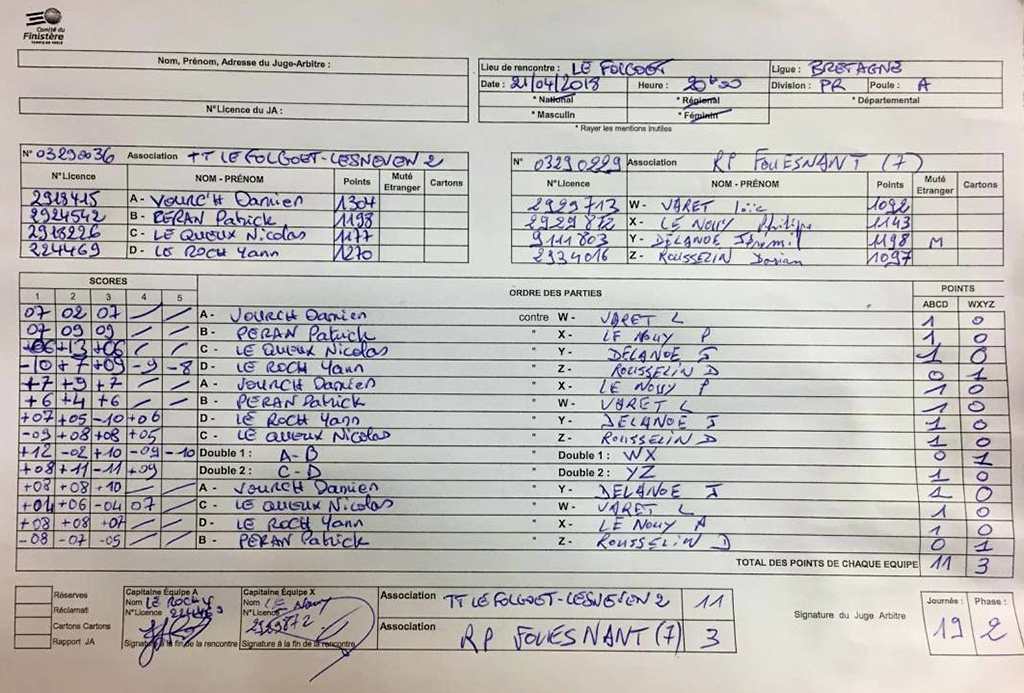 Comité du
Finistère
TENNIS DE TABLE
Nom, Prénom, Adresse du Juge-Arbitre :
N°Licence du JA :
Lieu de rencontre : LE FOLGOET Ligue : BRETAGNE
Date : 21/04/2018 Heure : 20h20 Division : PR Poule : A
* National * Régional * Départemental
* Masculin * Féminin
* Rayer les mentions inutiles
N° 03290036 Association TT LE FOLGOET-LESNEVEN 2
N°Licence NOM - PRÉNOM Points Muté Etranger Cartons
2918415 A - VOURC'H Damien 1304
2924542 B - PERAN Patrick 1198
2918226 C - LE QUEUX Nicolas 1177
224469 D - LE ROCH Yann 1270
N° 03290229 Association RP FOUESNANT (7)
N°Licence NOM - PRÉNOM Points Muté Etranger Cartons
2929713 W - VARET Loïc 1092
2929872 X - LE NOUY Philippe 1143
9111803 Y - DELANOE Jérémi 1198 M
2934016 Z - ROUSSELIN Dorian 1097
SCORES ORDRE DES PARTIES POINTS
1 2 3 4 5 ABCD WXYZ
07 02 07 / / A - VOURCH Damien contre W - VARET L 1 0
07 09 09 / / B - PERAN Patrick " X - LE NOUY P 1 0
+06 +13 +06 / / C - LE QUEUX Nicolas " Y - DELANOE J 1 0
-10 +7 +09 -9 -8 D - LE ROCH Yann " Z - ROUSSELIN D 0 1
+7 +9 +7 / / A - VOURCH Damien " X - LE NOUY P 1 0
+6 +4 +6 / / B - PERAN Patrick " W - VARET L 1 0
+07 +05 -10 +06 D - LE ROCH Yann " Y - DELANOE J 1 0
-09 +08 +08 +05 C - LE QUEUX Nicolas " Z - ROUSSELIN D 1 0
+12 -02 +10 -09 -10 Double 1 : A-B " Double 1 : WX 0 1
+08 +11 -11 +09 Double 2 : C-D " Double 2 : YZ 1 0
+08 +08 +10 / / A - VOURCH Damien " Y - DELANOE J 1 0
+04 +06 -04 07 / C - LE QUEUX Nicolas " W - VARET L 1 0
+08 +08 +07 / / D - LE ROCH Yann " X - LE NOUY P 1 0
-08 -07 -05 / / B - PERAN Patrick " Z - ROUSSELIN D 0 1
TOTAL DES POINTS DE CHAQUE EQUIPE 11 3
Réserves
Réclamati
Cartons Cartons
Rapport JA
Capitaine Équipe A
Nom LE ROCH Y
N°Licence 224469
Signature à la fin de la rencontre
Capitaine Équipe X
Nom LE NOUY
N°Licence 2929872
Signature à la fin de la rencontre
Association TT LE FOLGOET-LESNEVEN 2 11
Association RP FOUESNANT (7) 3
Signature du Juge Arbitre
Journée : Phase :
19 2